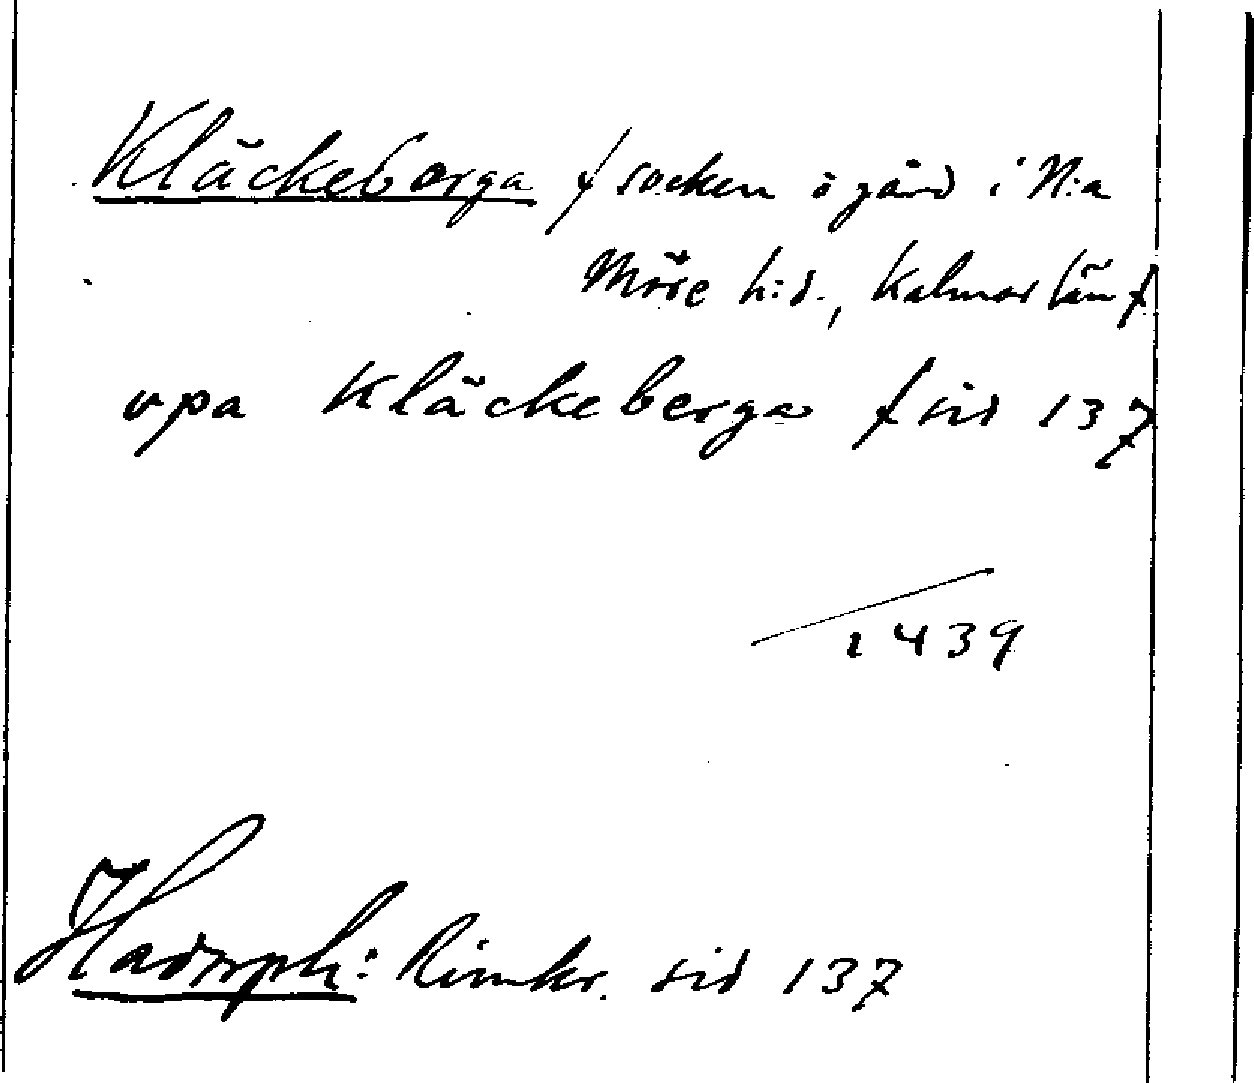 Kläckeberga / socken o gård i N:a
Möre h:d., Kalmar län /
vpa Kläckeberga / sid 137
1439
Hadorph: Rimkr. sid 137